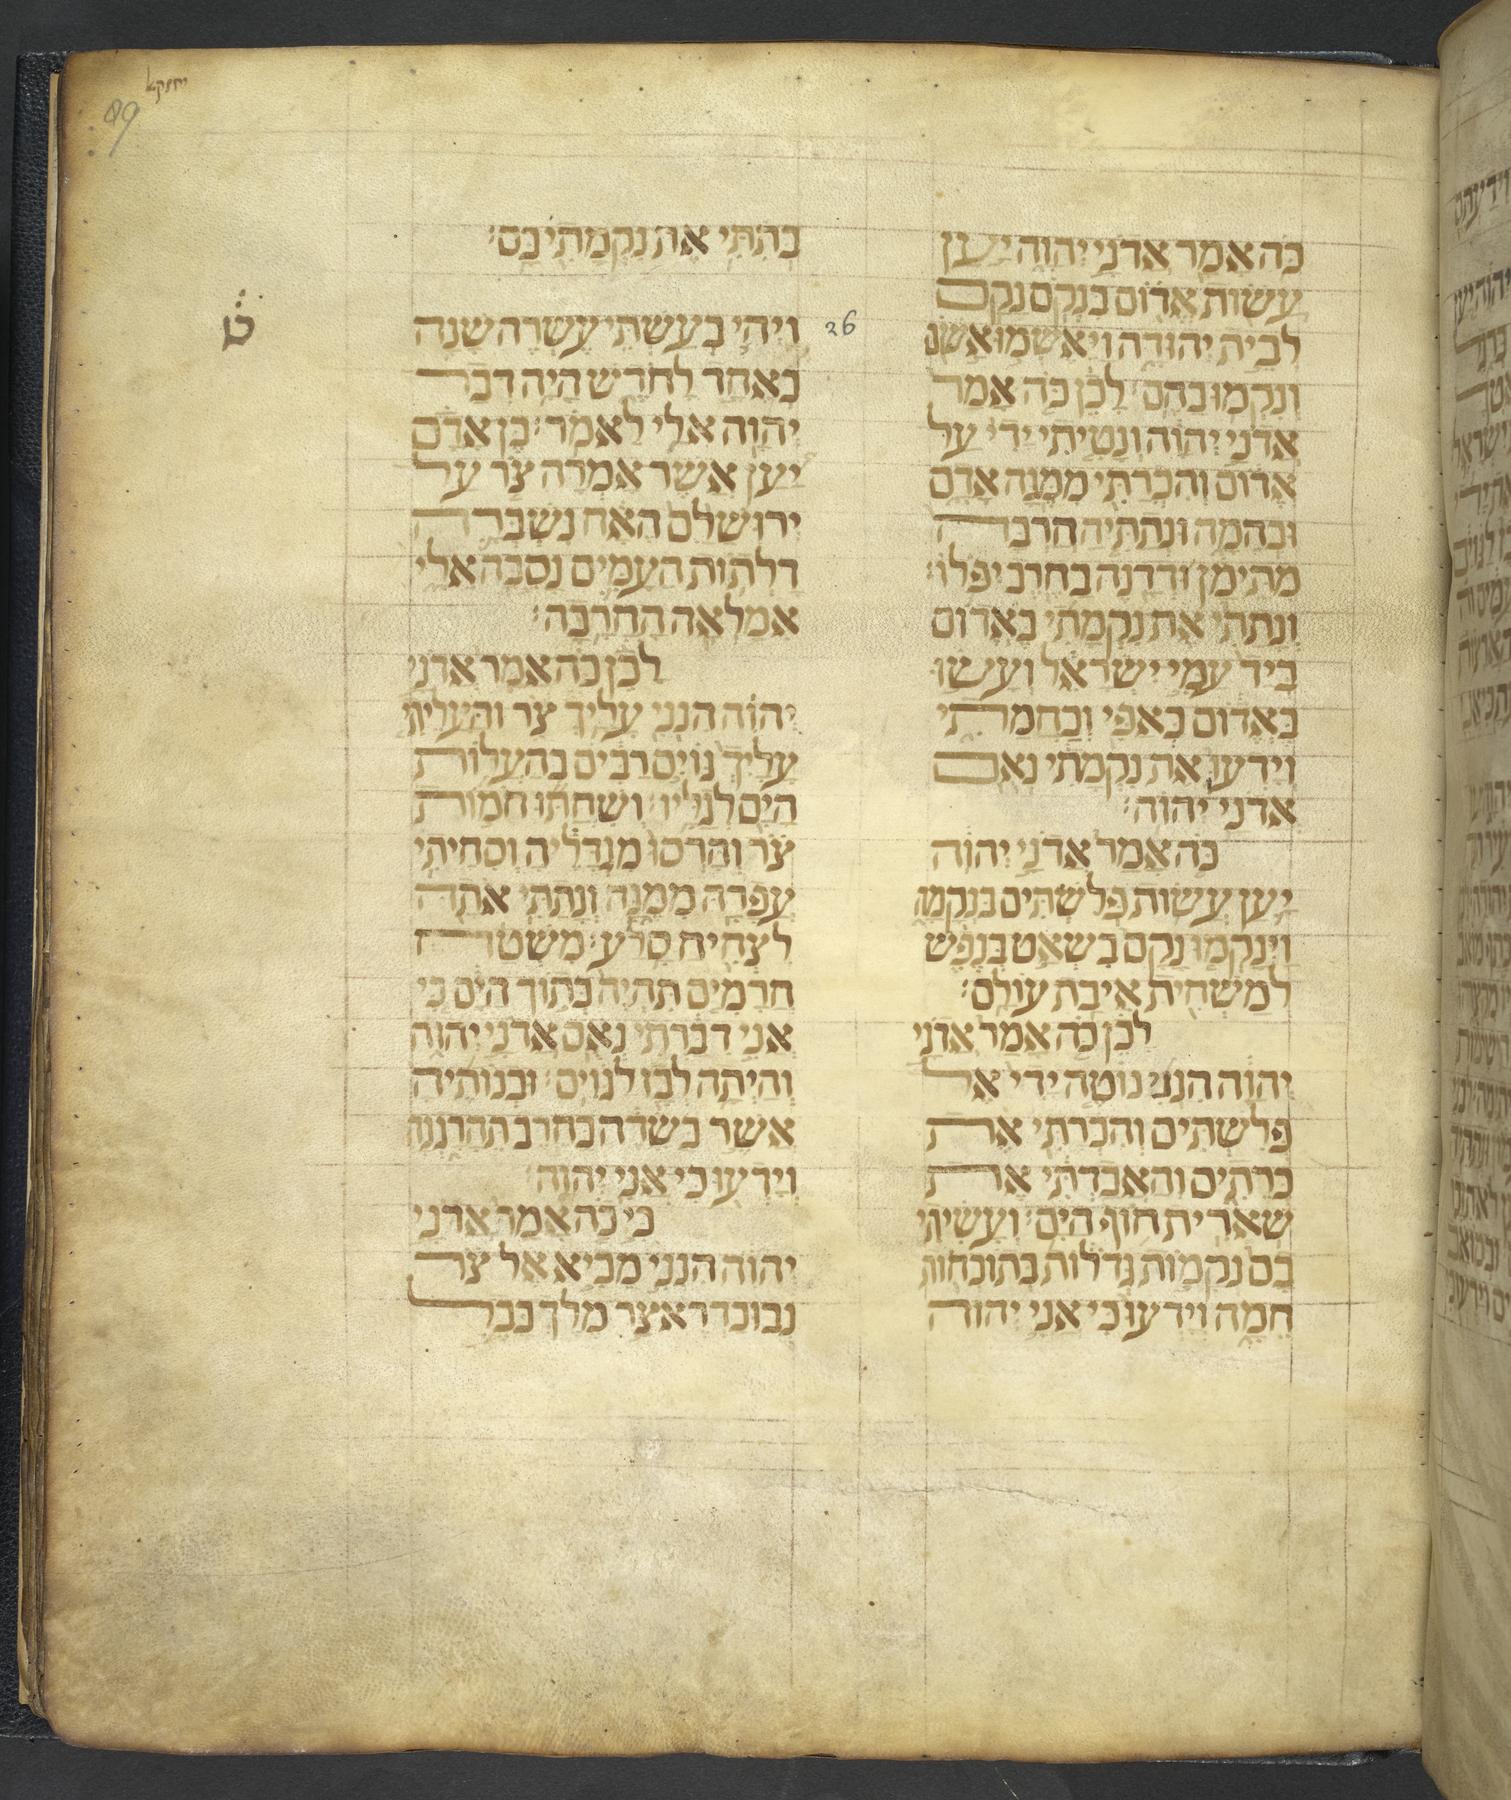 יחזקאל
89
כֹּה אָמַר אֲדֹנָי יְהוִה יַעַן
עֲשׂוֹת אֱדוֹם בִּנְקֹם נָקָם
לְבֵית יְהוּדָה וַיֶּאְשְׁמוּ אָשׁוֹם
וְנִקְּמוּ בָהֶם׃ לָכֵן כֹּה אָמַר
אֲדֹנָי יְהוִה וְנָטִיתִי יָדִי עַל
אֱדוֹם וְהִכְרַתִּי מִמֶּנָּה אָדָם
וּבְהֵמָה וּנְתַתִּיהָ חָרְבָּה
מִתֵּימָן וּדְדָנֶה בַּחֶרֶב יִפֹּלוּ׃
וְנָתַתִּי אֶת נִקְמָתִי בֶּאֱדוֹם
בְּיַד עַמִּי יִשְׂרָאֵל וְעָשׂוּ
בֶאֱדוֹם כְּאַפִּי וְכַחֲמָתִי
וְיָדְעוּ אֶת נִקְמָתִי נְאֻם
אֲדֹנָי יְהוִה׃
כֹּה אָמַר אֲדֹנָי יְהוִה
יַעַן עֲשׂוֹת פְּלִשְׁתִּים בִּנְקָמָה
וַיִּנָּקְמוּ נָקָם בִּשְׁאָט בְּנֶפֶשׁ
לְמַשְׁחִית אֵיבַת עוֹלָם׃
לָכֵן כֹּה אָמַר אֲדֹנָי
יְהוִה הִנְנִי נוֹטֶה יָדִי אֶל
פְּלִשְׁתִּים וְהִכְרַתִּי אֶת
כְּרֵתִים וְהַאֲבַדְתִּי אֶת
שְׁאֵרִית חוֹף הַיָּם׃ וְעָשִׂיתִי
בָם נְקָמוֹת גְּדֹלוֹת בְּתוֹכְחוֹת
חֵמָה וְיָדְעוּ כִּי אֲנִי יְהוָה
בְּתִתִּי אֶת נִקְמָתִי בָּם׃
26
וַיְהִי בְּעַשְׁתֵּי עֶשְׂרֵה שָׁנָה
ט
בְּאֶחָד לַחֹדֶשׁ הָיָה דְבַר
יְהוָה אֵלַי לֵאמֹר׃ בֶּן אָדָם
יַעַן אֲשֶׁר אָמְרָה צֹּר עַל
יְרוּשָׁלִַם הֶאָח נִשְׁבְּרָה
דַּלְתוֹת הָעַמִּים נָסֵבָּה אֵלָי
אִמָּלְאָה הָחֳרָבָה׃
לָכֵן כֹּה אָמַר אֲדֹנָי
יְהוִה הִנְנִי עָלַיִךְ צֹר וְהַעֲלֵיתִי
עָלַיִךְ גּוֹיִם רַבִּים כְּהַעֲלוֹת
הַיָּם לְגַלָּיו׃ וְשִׁחֲתוּ חֹמוֹת
צֹר וְהָרְסוּ מִגְדָּלֶיהָ וְסִחֵיתִי
עֲפָרָהּ מִמֶּנָּה וְנָתַתִּי אֹתָהּ
לִצְחִיחַ סָלַע׃ מִשְׁטַח
חֲרָמִים תִּהְיֶה בְּתוֹךְ הַיָּם כִּי
אֲנִי דִבַּרְתִּי נְאֻם אֲדֹנָי יְהוִה
וְהָיְתָה לְבַז לַגּוֹיִם׃ וּבְנוֹתֶיהָ
אֲשֶׁר בַּשָּׂדֶה בַּחֶרֶב תֵּהָרַגְנָה
וְיָדְעוּ כִּי אֲנִי יְהוָה׃
כִּי כֹה אָמַר אֲדֹנָי
יְהוִה הִנְנִי מֵבִיא אֶל צֹר
נְבוּכַדְרֶאצַּר מֶלֶךְ בָּבֶל